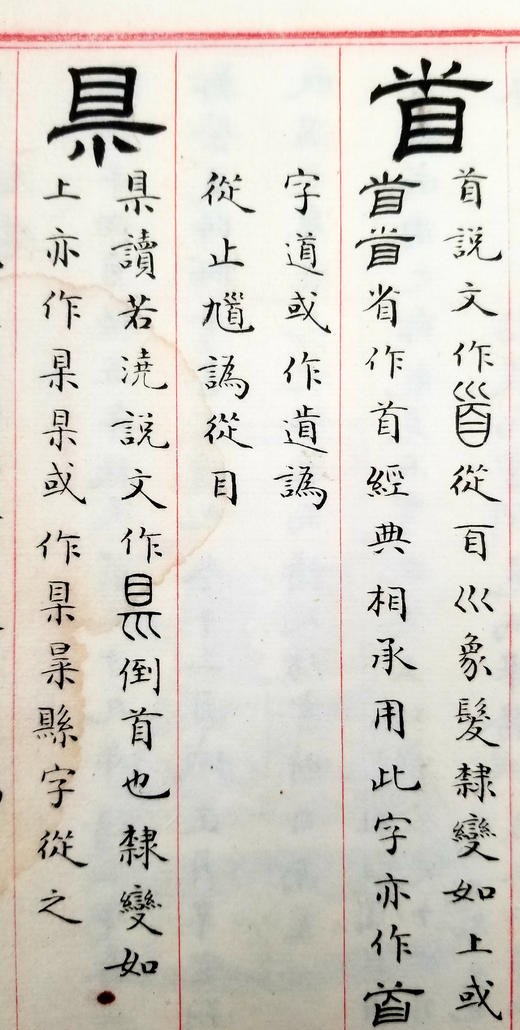 首
首說文作𩠐從𦣻巛象髮隸變如上或
省作首經典相承用此字亦作
字道或作𨕥譌
從止馗譌從目
𥄉
𥄉讀若澆說文作倒首也隸變如
上亦作或作縣字從之